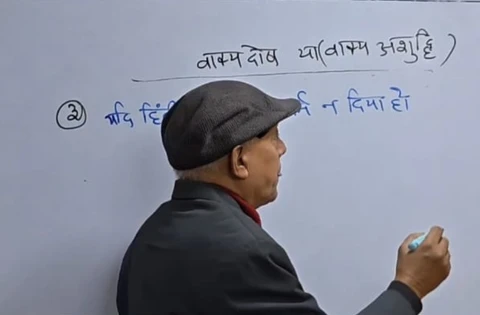 वाक्य दोष या (वाक्य अशुद्धि)
③ यदि न दिया हो